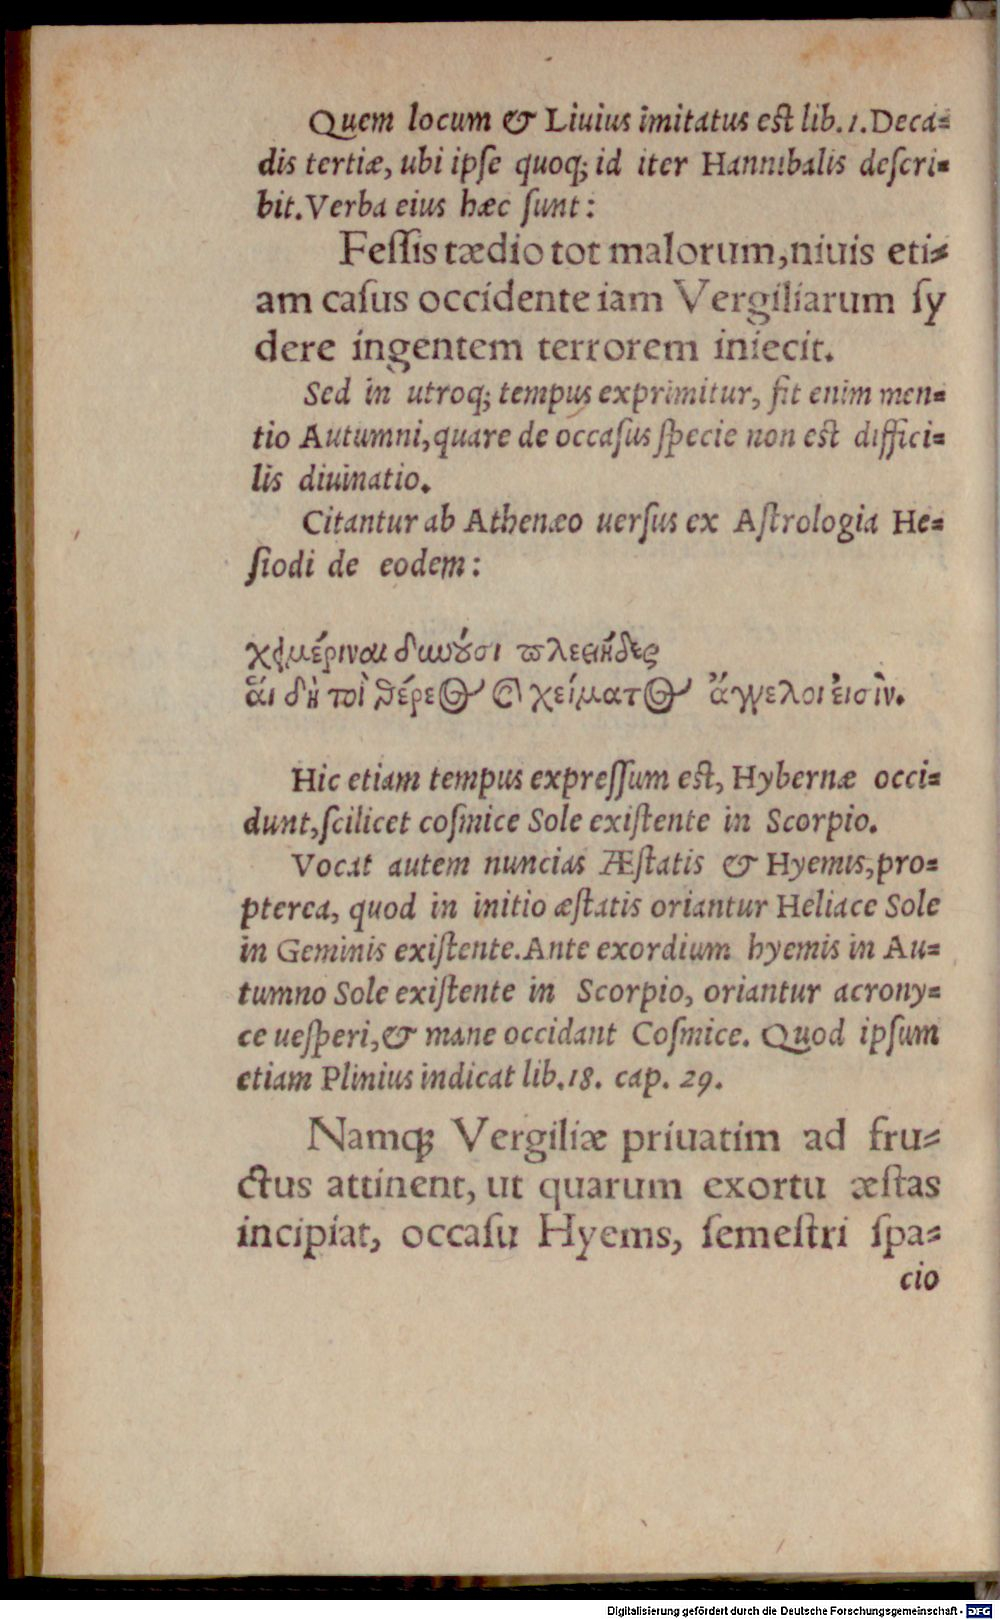 Quem locum & Liuius imitatus est lib. 1. Deca-
dis tertiæ, ubi ipse quoq; id iter Hannibalis descri-
bit. Verba eius hæc sunt:
Fessis tædio tot malorum, niuis eti-
am casus occidente iam Vergiliarum sy
dere ingentem terrorem iniecit.
Sed in utroq; tempus exprimitur, fit enim men-
tio Autumni, quare de occasus specie non est diffici-
lis diuinatio.
Citantur ab Athenæo uersus ex Astrologia He-
siodi de eodem:
χειμέριναι δύουσι πλειάδες
αἵ δὴ τοὶ θέρεος καὶ χείματος ἄγγελοι εἰσὶν.
Hic etiam tempus expressum est, Hybernæ occi-
dunt, scilicet cosmice Sole existente in Scorpio.
Vocat autem nuncias Æstatis & Hyemis, pro-
pterea, quod in initio æstatis oriantur Heliace Sole
in Geminis existente. Ante exordium hyemis in Au-
tumno Sole existente in Scorpio, oriantur acrony-
ce uesperi, & mane occidant Cosmice. Quod ipsum
etiam Plinius indicat lib. 18. cap. 29.
Namq; Vergiliæ priuatim ad fru-
ctus attinent, ut quarum exortu æstas
incipiat, occasu Hyems, semestri spa-
cio
Digitalisierung gefördert durch die Deutsche Forschungsgemeinschaft - DFG